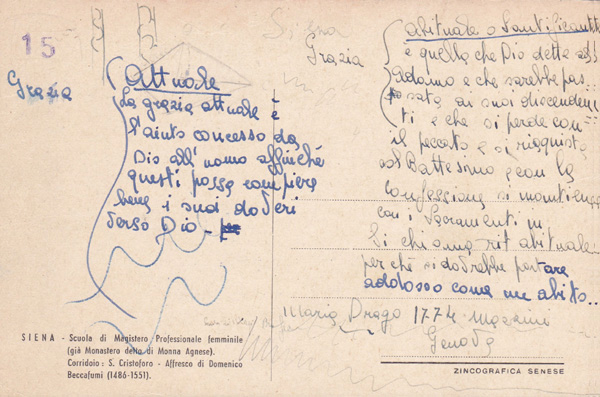 15
Grazia
Attuale
La grazia attuale è
l'aiuto concesso da
Dio all'uomo affinché
questi possa compiere
bene i suoi doveri
verso Dio -
Grazia
Abituale o Santificante
è quella che Dio dette ad
Adamo e che sarebbe pas
sata ai suoi discenden
ti e che si perde con
il peccato e si riaquista
col Battesimo e con la
confessione si mantiene
con i Sacramenti
Si chiama abituale
perché si dovrebbe portare
addosso come un abito..
Maria Drago 1774
Genova
SIENA - Scuola di Magistero Professionale femminile
(già Monastero detto di Monna Agnese).
Corridoio: S. Cristoforo - Affresco di Domenico
Beccafumi (1486-1551).
ZINCOGRAFICA SENESE